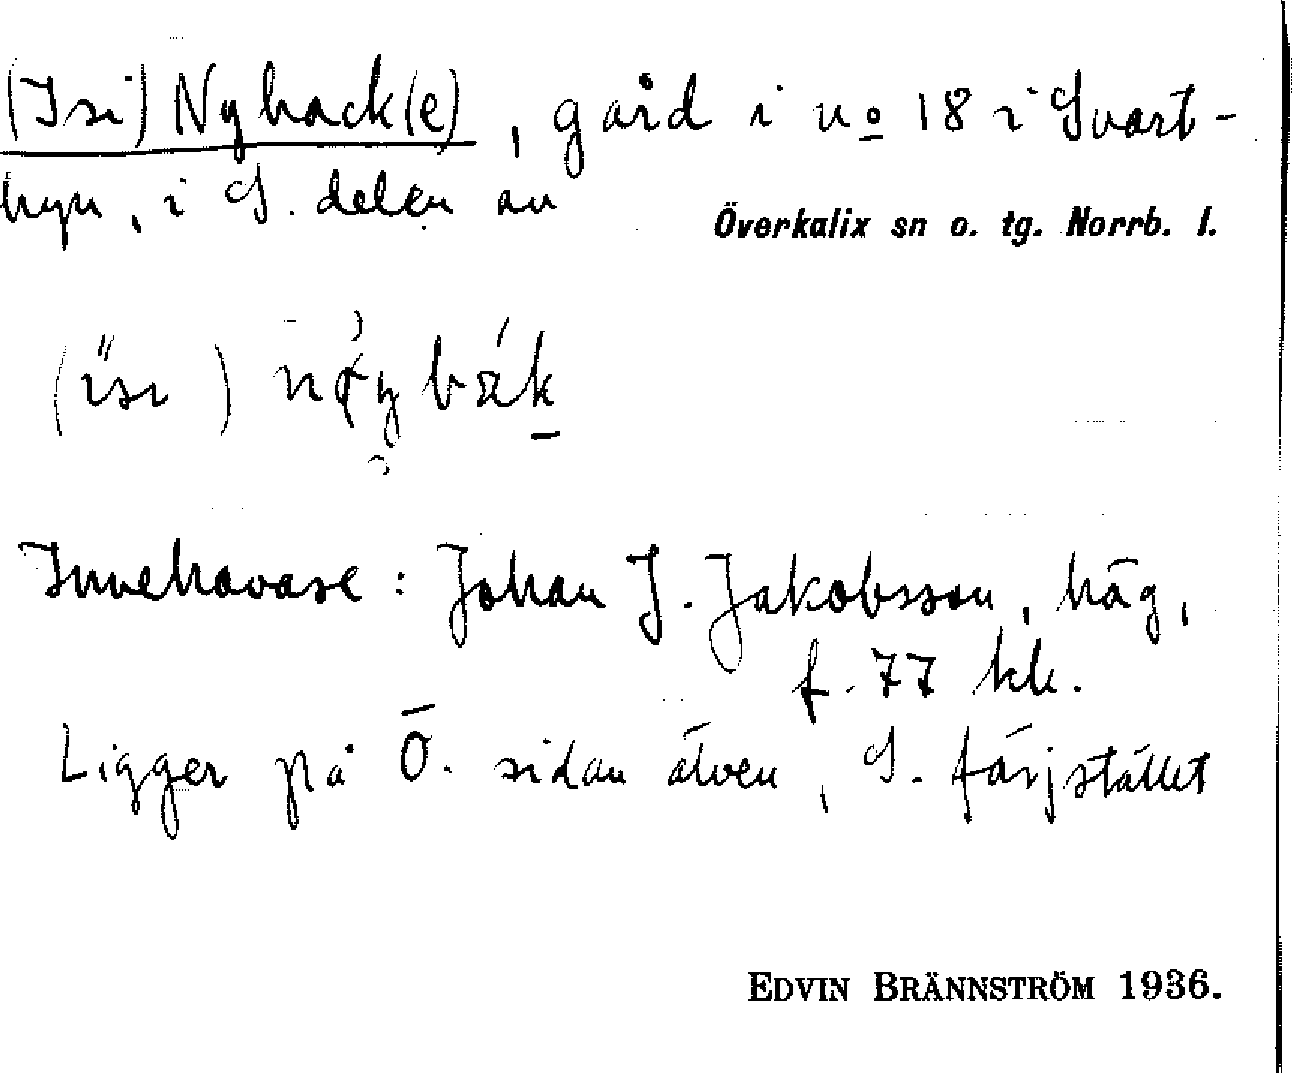 (Isi) Nyback(e), gård i no 18 i Svart-
byn, i S. delen av
Överkalix sn o. tg. Norrb. l.
(isi)
Innehavare: Johan J. Jakobsson, häg,
f. 77
Ligger på Ö. sidan älven, S. färjstället
EDVIN BRÄNNSTRÖM 1936.